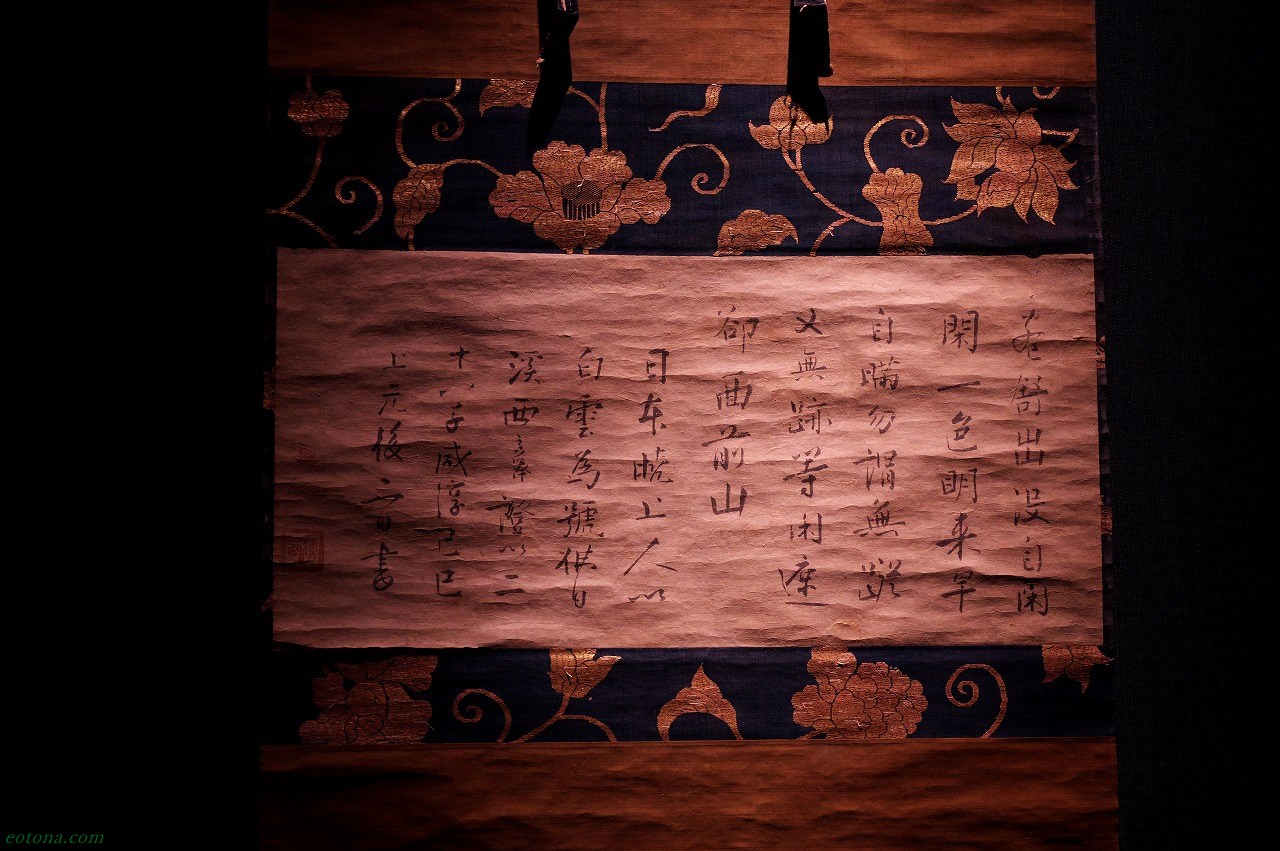 若舒出没自閑
閑一色明来早
自瞞勿謂無蹤
又無跡等閑庶
卻面前山
日本曉上人以
白雲為號供自
溪西立澤證以二
十八字咸淳己巳
上元後一日書
eotona.com